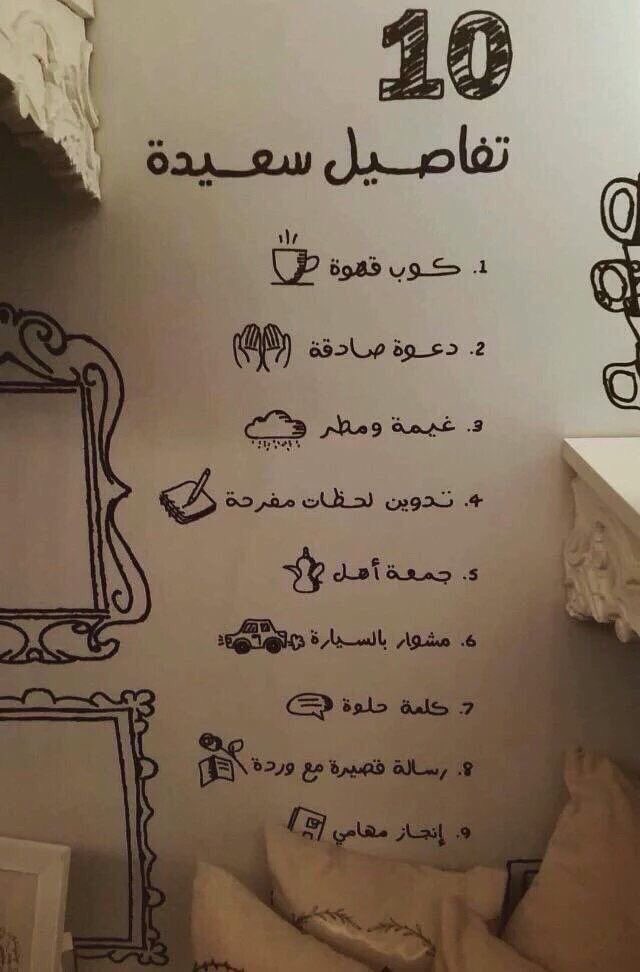 10
تفاصيل سعيدة
1. كوب قهوة
2. دعوة صادقة
3. غيمة ومطر
4. تدوين لحظات مفرحة
5. جمعة أهل
6. مشوار بالسيارة
7. كلمة حلوة
8. رسالة قصيرة مع وردة
9. إنجاز مهامي